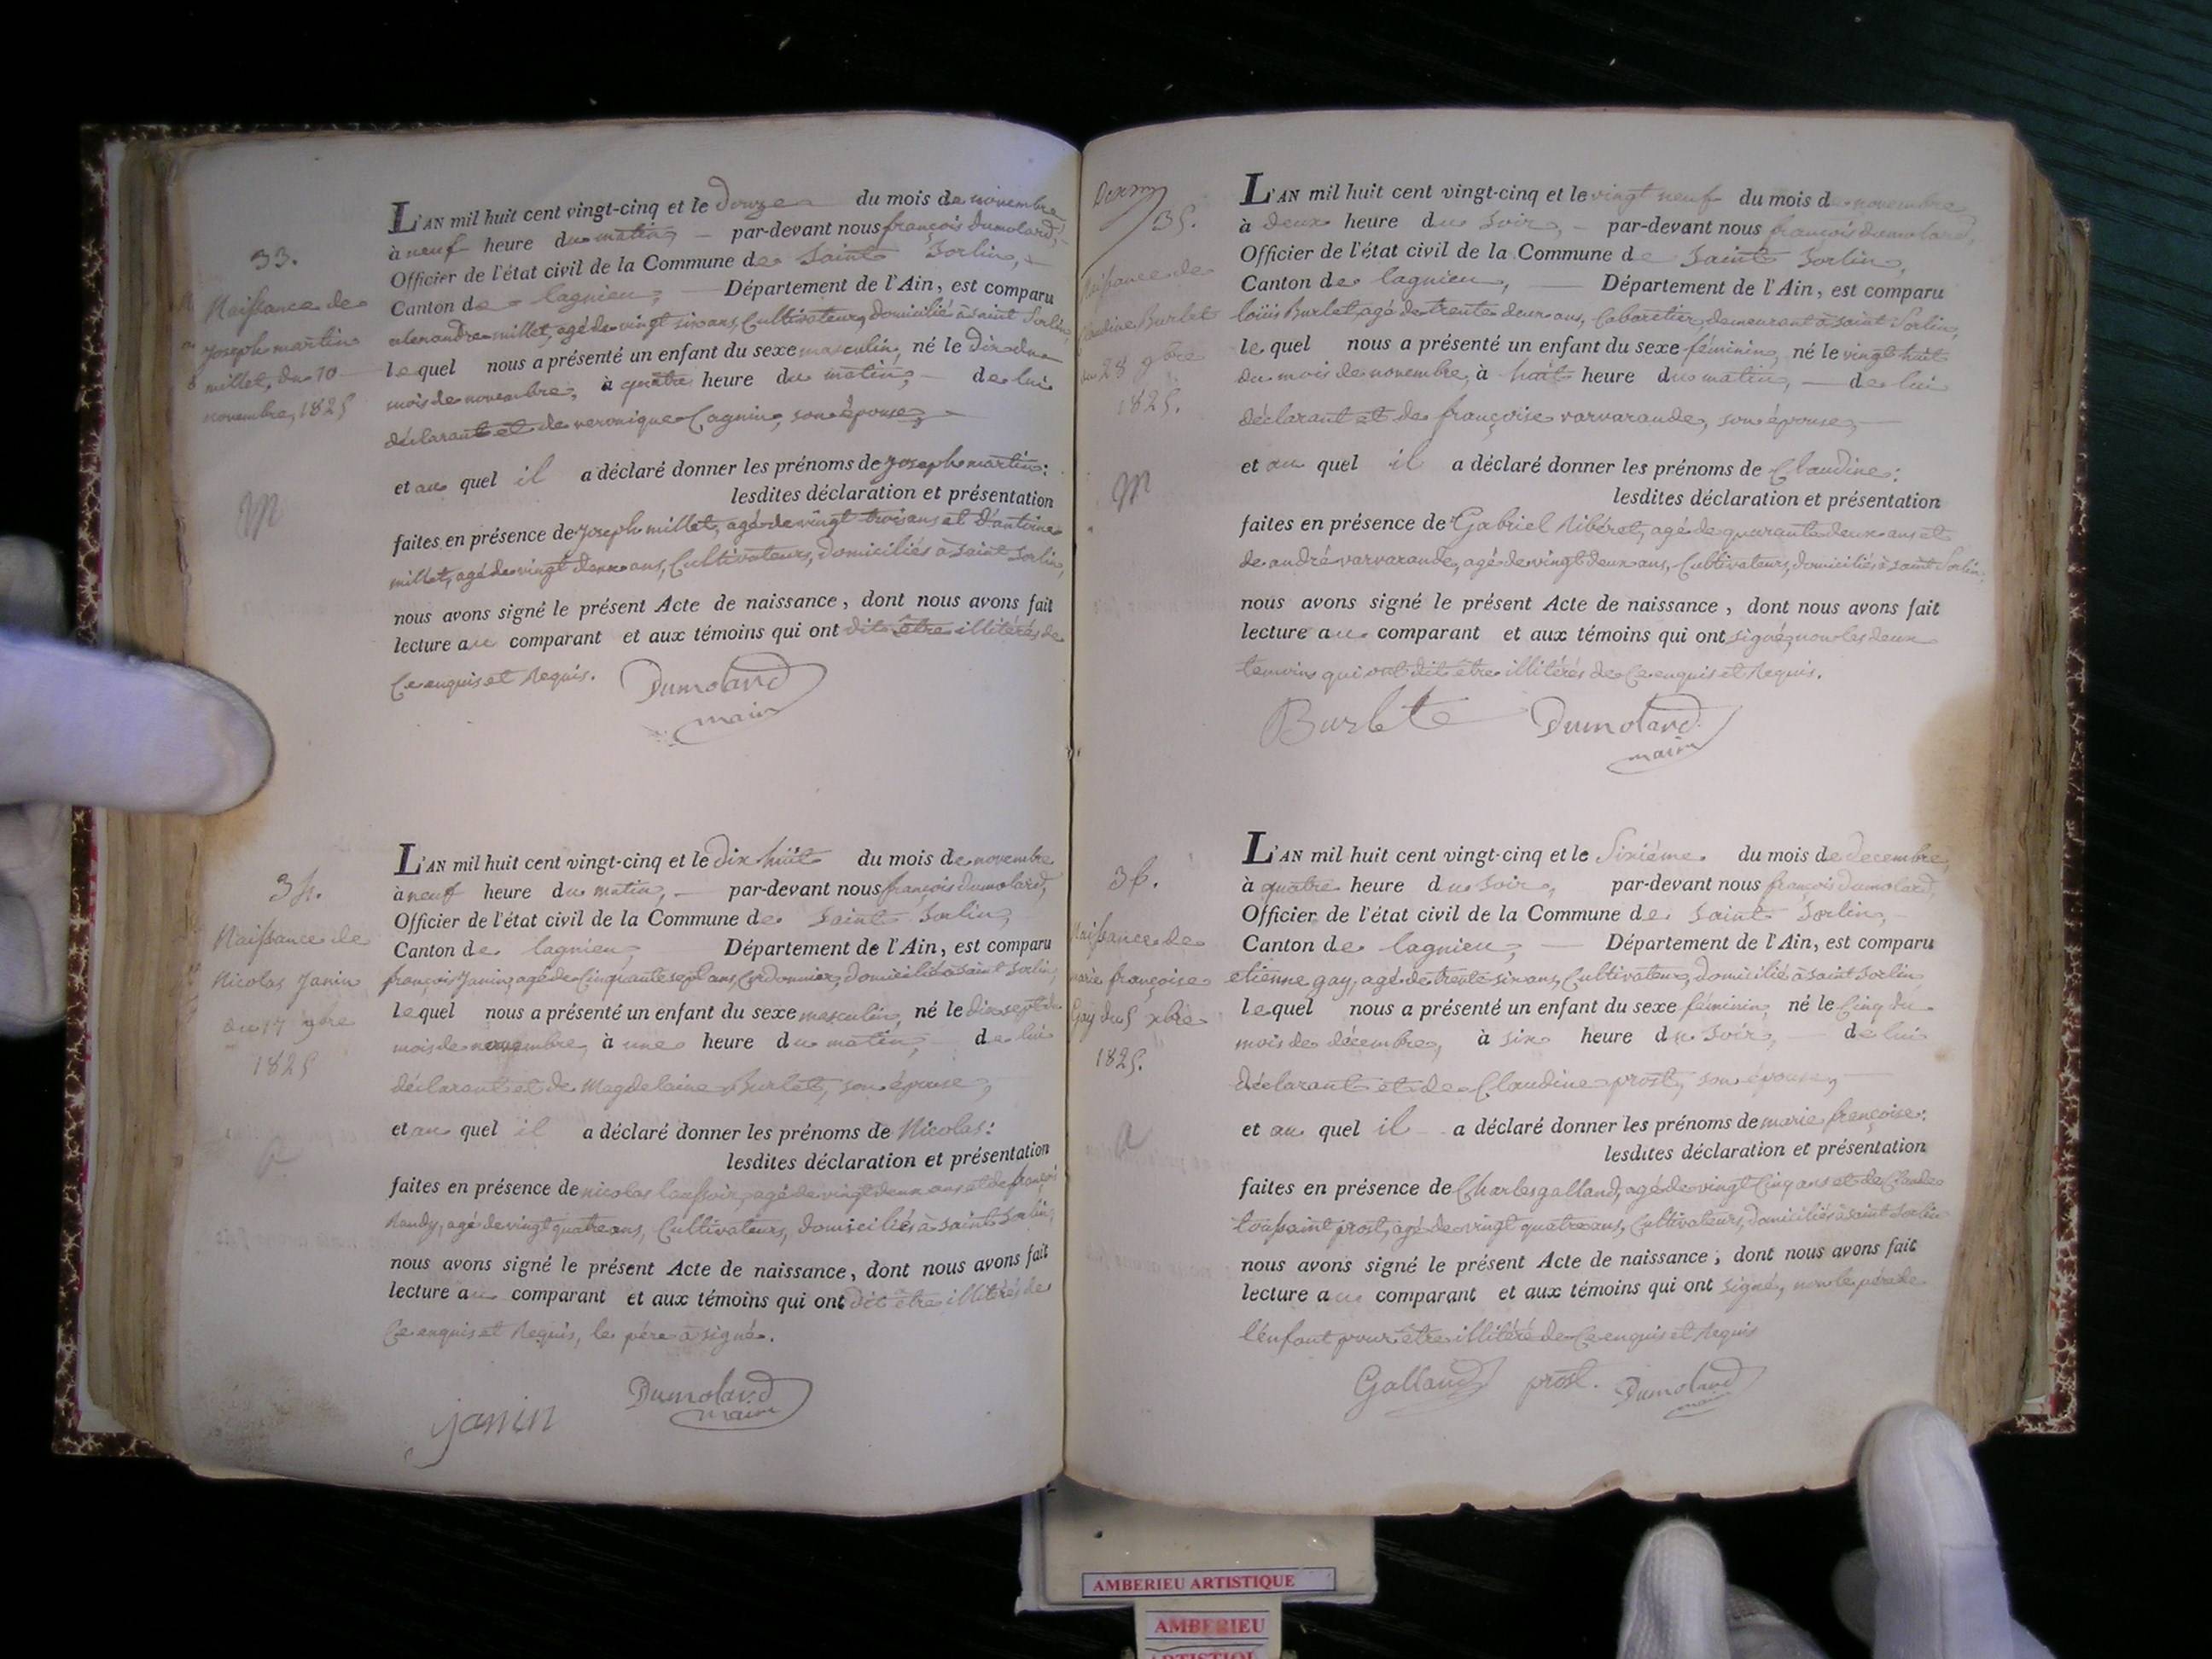 33.
Naissance de
Joseph martin
millet, du 10
novembre, 1825
M
L'AN mil huit cent vingt-cinq et le Douze du mois de novembre
à neuf heure du matin, par-devant nous françois dumolard,
Officier de l'état civil de la Commune de Saint Sorlin,
Canton de lagnieu, Département de l'Ain, est comparu
alexandre millet, agé de vingt six ans, Cultivateur, domicilié à saint Sorlin,
lequel nous a présenté un enfant du sexe masculin, né le dix du
mois de novembre, à quatre heure du matin, de lui
déclarant et de veronique Cagnin, son épouse,
et au quel il a déclaré donner les prénoms de Joseph martin:
lesdites déclaration et présentation
faites en présence de Joseph millet, agé de vingt trois ans et d'antoine
millet, agé de vingt deux ans, Cultivateurs, domiciliés à saint Sorlin,
nous avons signé le présent Acte de naissance, dont nous avons fait
lecture au comparant et aux témoins qui ont dit être illitérés de
Ce enquis et Requis. Dumolard
maire
34.
Naissance de
Nicolas Janin
du 17 9bre
1825
L'AN mil huit cent vingt-cinq et le dix huit du mois de novembre
à neuf heure du matin, par-devant nous françois dumolard,
Officier de l'état civil de la Commune de Saint Sorlin,
Canton de lagnieu, Département de l'Ain, est comparu
françois Janin, agé de Cinquante sept ans, Cordonnier, domicilié à saint Sorlin,
lequel nous a présenté un enfant du sexe masculin, né le dix sept du
mois de novembre, à une heure du matin, de lui
déclarant et de Magdelaine Burlet, son épouse,
et au quel il a déclaré donner les prénoms de Nicolas:
lesdites déclaration et présentation
faites en présence de nicolas agé de vingt deux ans et de françois
Randy, agé de vingt quatre ans, Cultivateurs, domiciliés à saint Sorlin,
nous avons signé le présent Acte de naissance, dont nous avons fait
lecture au comparant et aux témoins qui ont dit être illitérés de
Ce enquis et Requis, le père a signé.
janin Dumolard
maire
35.
Naissance de
Claudine Burlet
du 28 9bre
1825.
M
L'AN mil huit cent vingt-cinq et le vingt neuf du mois de novembre
à deux heure du soir, par-devant nous françois dumolard,
Officier de l'état civil de la Commune de Saint Sorlin,
Canton de lagnieu, Département de l'Ain, est comparu
loüis Burlet, agé de trente deux ans, Cabaretier, demeurant à saint Sorlin,
lequel nous a présenté un enfant du sexe féminin, né le vingt huit
du mois de novembre, à huit heure du matin, de lui
déclarant et de françoise varvarande, son épouse,
et au quel il a déclaré donner les prénoms de Claudine:
lesdites déclaration et présentation
faites en présence de Gabriel Ribéret, agé de quarante deux ans et
de andré varvarande, agé de vingt deux ans, Cultivateurs, domiciliés à saint Sorlin,
nous avons signé le présent Acte de naissance, dont nous avons fait
lecture au comparant et aux témoins qui ont signé, non les deux
temoins qui ont dit être illitérés de Ce enquis et Requis.
Burlet Dumolard
maire
36.
Naissance de
marie françoise
Gay du 5 xbre
1825.
L'AN mil huit cent vingt-cinq et le Sixième du mois de decembre,
à quatre heure du soir, par-devant nous françois dumolard,
Officier de l'état civil de la Commune de Saint Sorlin,
Canton de lagnieu, Département de l'Ain, est comparu
etienne gay, agé de trente six ans, Cultivateur, domicilié à saint Sorlin
lequel nous a présenté un enfant du sexe féminin, né le Cinq du
mois de décembre, à six heure du soir, de lui
déclarant et de Claudine prost, son épouse,
et au quel il a déclaré donner les prénoms de marie françoise:
lesdites déclaration et présentation
faites en présence de Charles galland, agé de vingt Cinq ans et de Claude
toussaint prost, agé de vingt quatre ans, Cultivateurs, domiciliés à saint Sorlin
nous avons signé le présent Acte de naissance, dont nous avons fait
lecture au comparant et aux témoins qui ont signé, non le père de
l'enfant pour être illitéré de Ce enquis et Requis
Galland prost. Dumolard
maire
AMBERIEU ARTISTIQUE
AMBERIEU
ARTISTIQUE